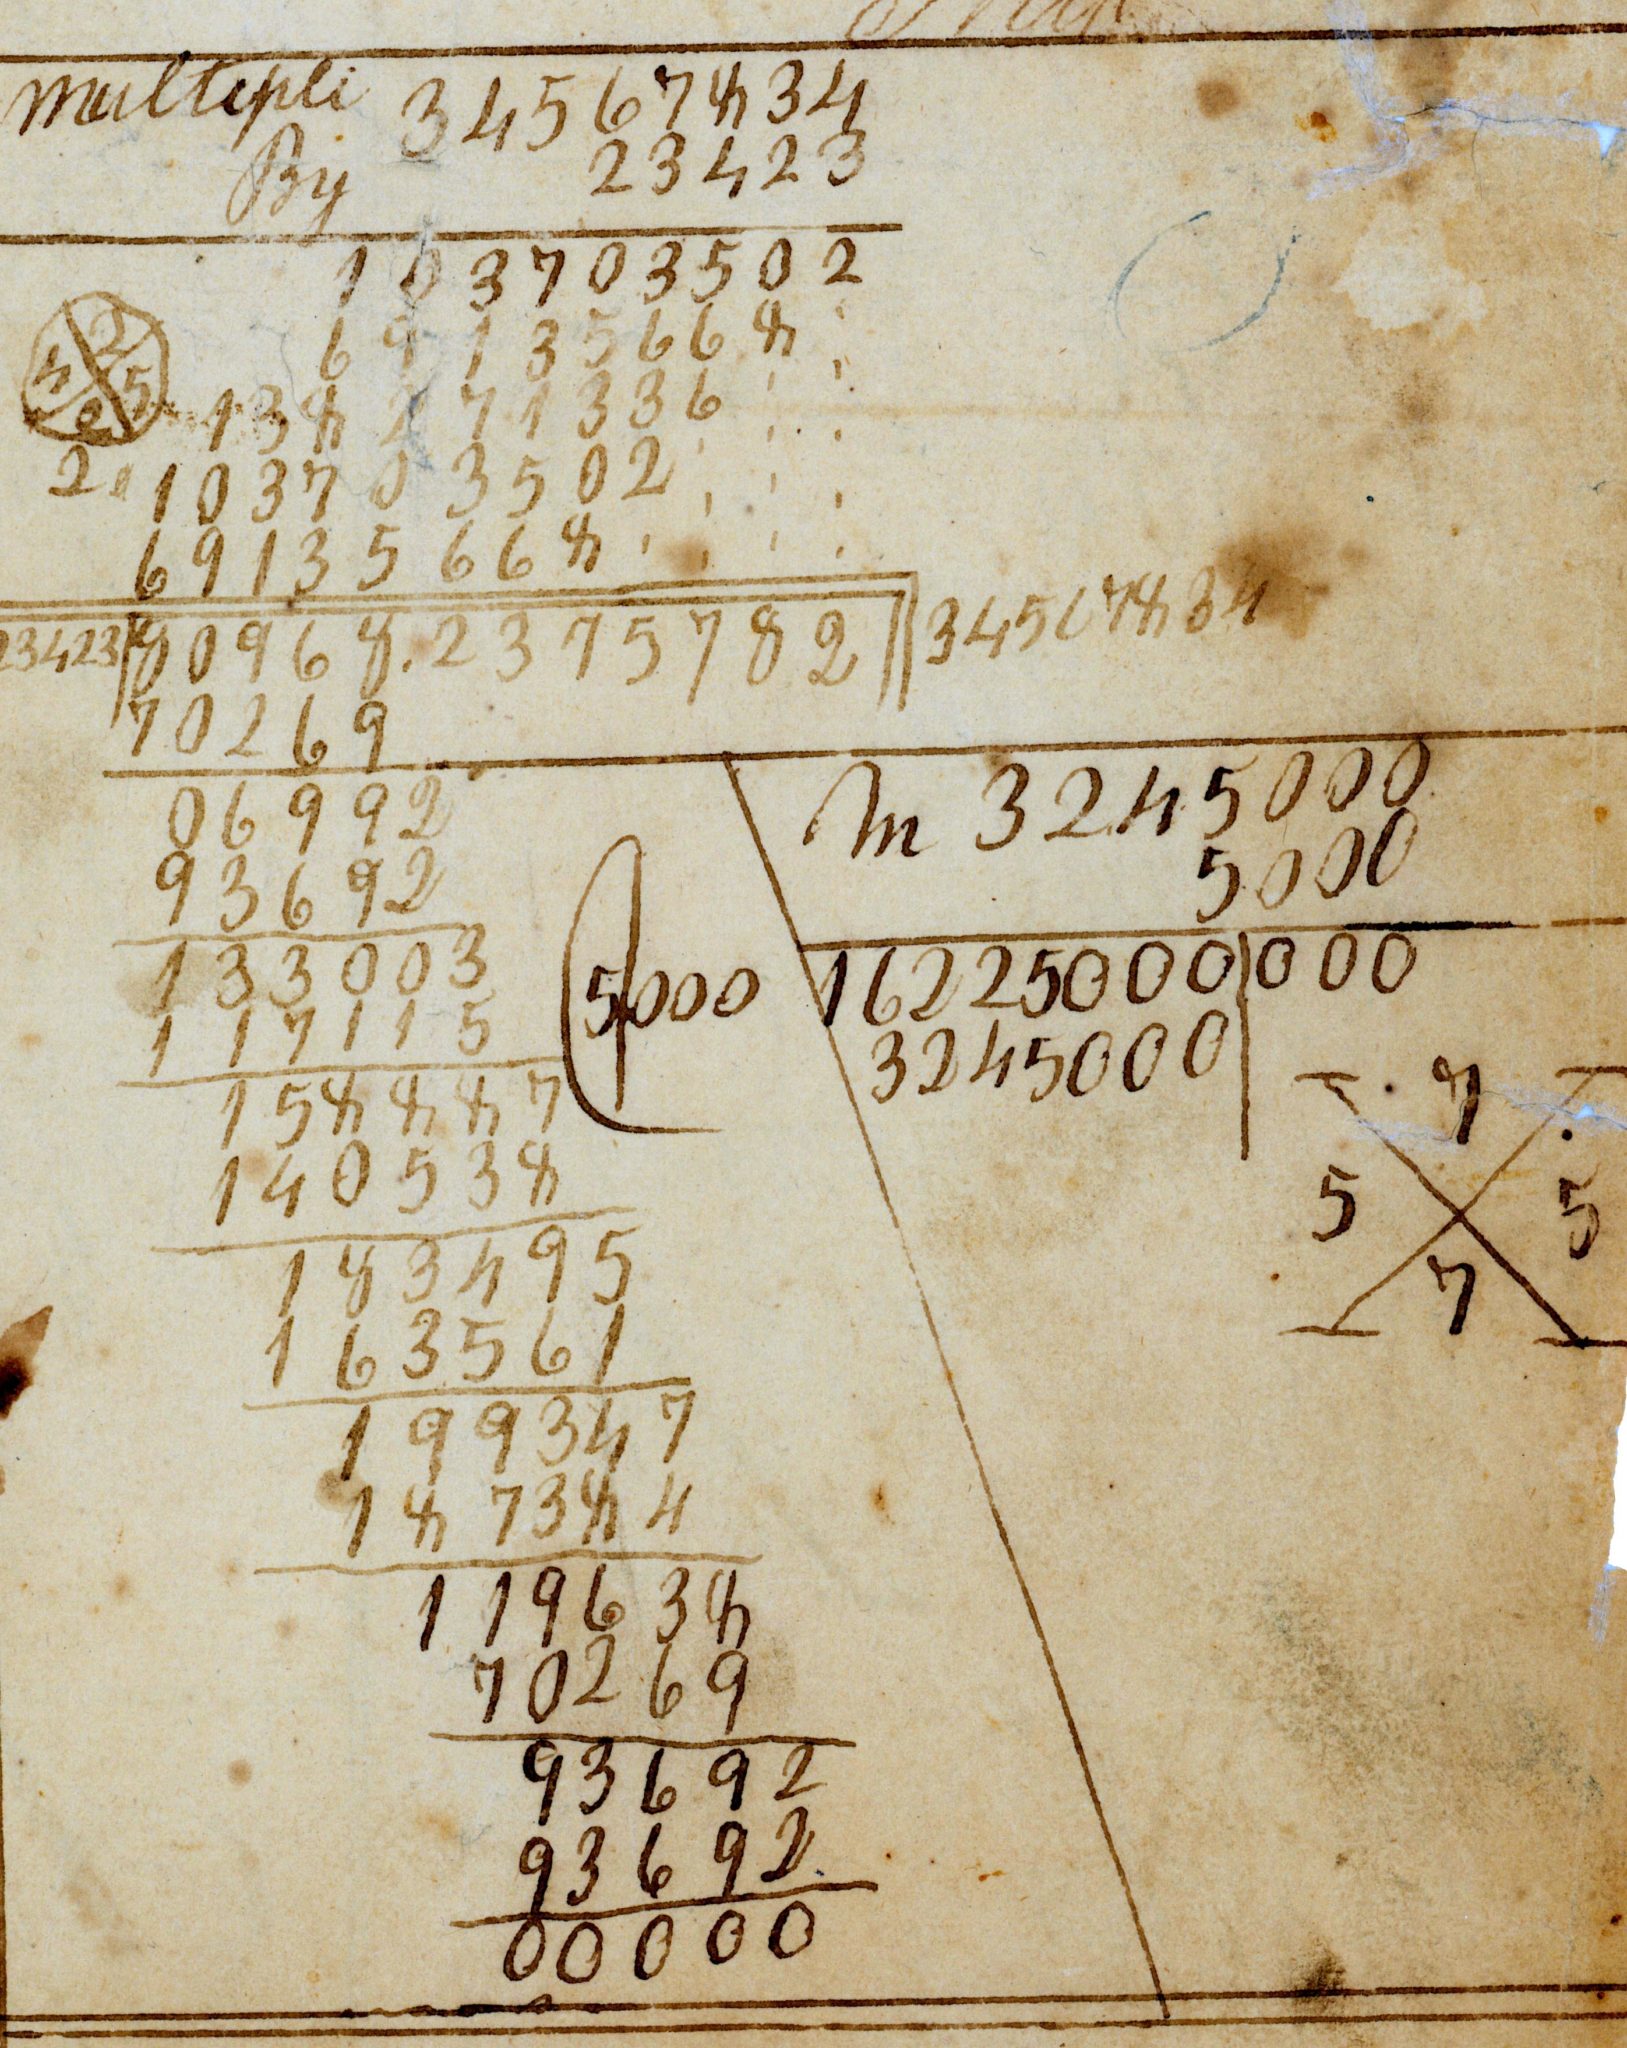 Multepli 34567834
By 23423
103703502
69135668
138271336
2 103703502
69135668
23423 809688.2375782 34567834
70269
06992
93692
133003
117115
158887
140538
183495
163561
199347
187384
119638
70269
93692
93692
00000
4 2 5 2
M 3245000
5000
5000 16225000000
3245000
7
5 5
7